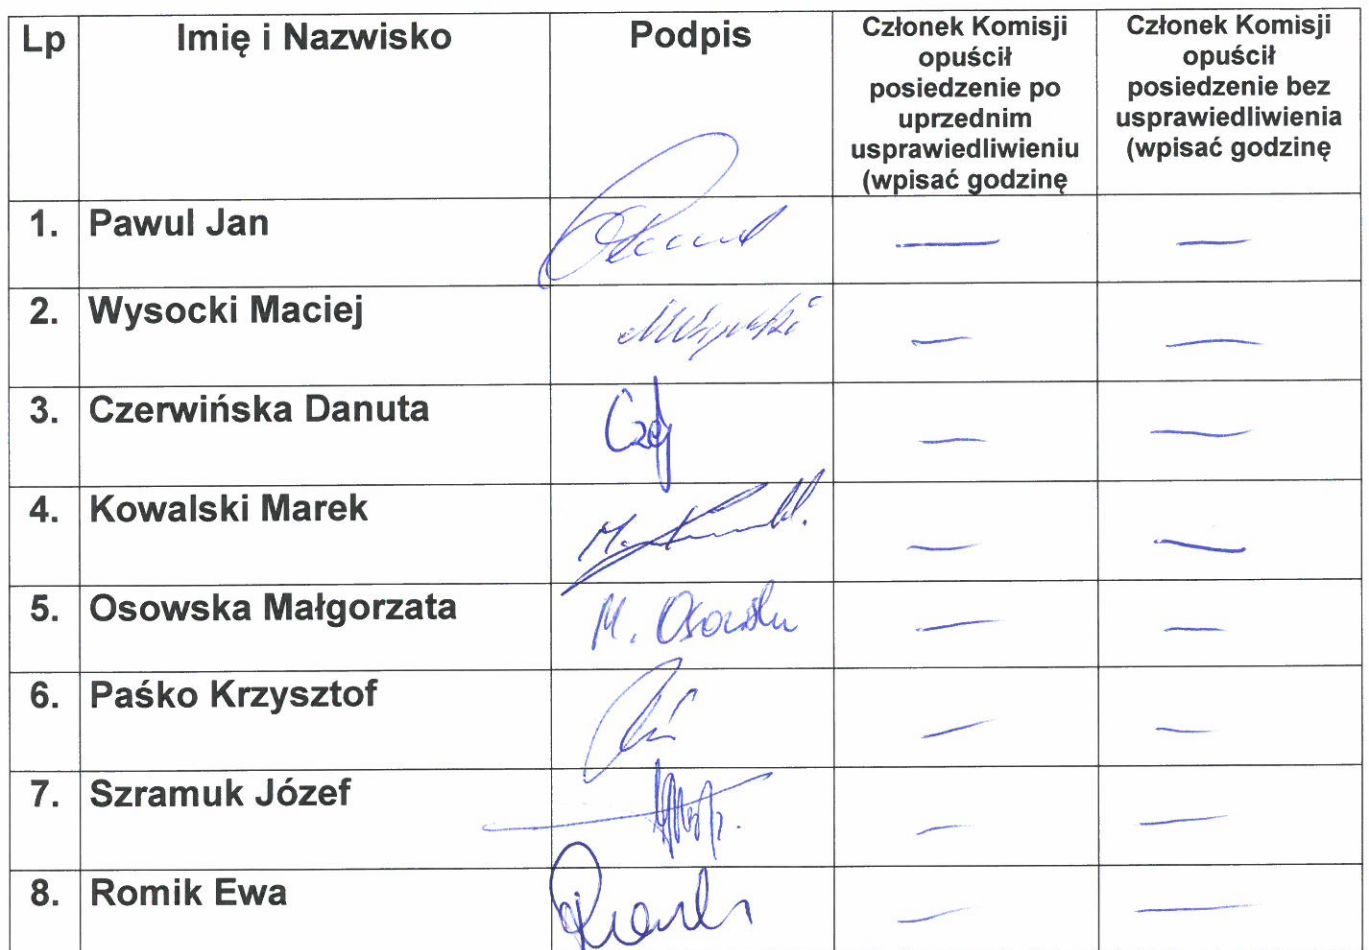 Lp Imię i Nazwisko Podpis Członek Komisji opuścił posiedzenie po uprzednim usprawiedliwieniu (wpisać godzinę Członek Komisji opuścił posiedzenie bez usprawiedliwienia (wpisać godzinę
1. Pawul Jan — —
2. Wysocki Maciej — —
3. Czerwińska Danuta — —
4. Kowalski Marek — —
5. Osowska Małgorzata M. Osowska — —
6. Paśko Krzysztof — —
7. Szramuk Józef — —
8. Romik Ewa — —